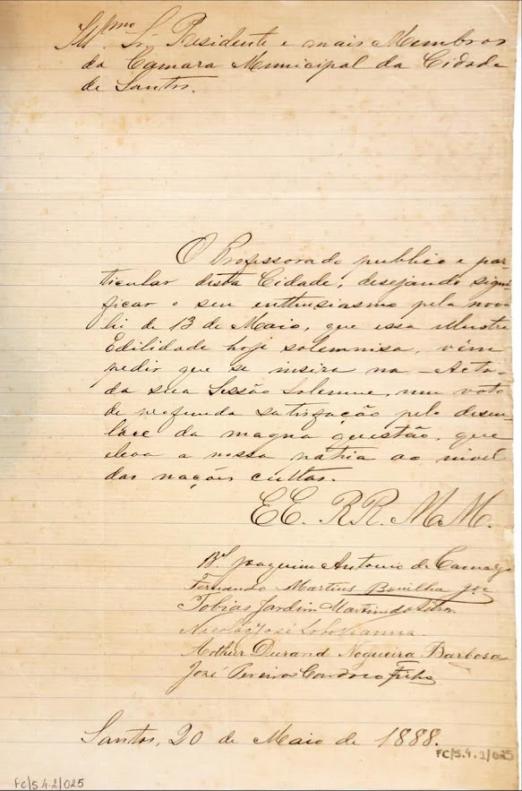 Illmo Sr. Presidente e mais Membros
da Camara Municipal da Cidade
de Santos.
O Professorado publico e par-
ticular desta Cidade, desejando signi-
ficar o seu enthusiasmo pela nova
lei de 13 de Maio, que essa illustre
Edilidade hoje solemnisa, vêm
pedir que se insira na Acta
da sua Sessão solemne, um voto
de profunda satisfação pelo desen-
lace da magna questão, que
eleva a nossa patria ao nivel
das nações cultas.
EE. RR. M. M.
Bel. Joaquim Antonio de Camargo
Fernando Martins Bonilha Jor
Tobias Jardim Martins da Silva
Nicolau José Lobo Vianna
Arthur Durand Nogueira Barbosa
José Cardoso Filho
Santos, 20 de Maio de 1888.
FC/5.4.2/025
FC/5.4.2/025